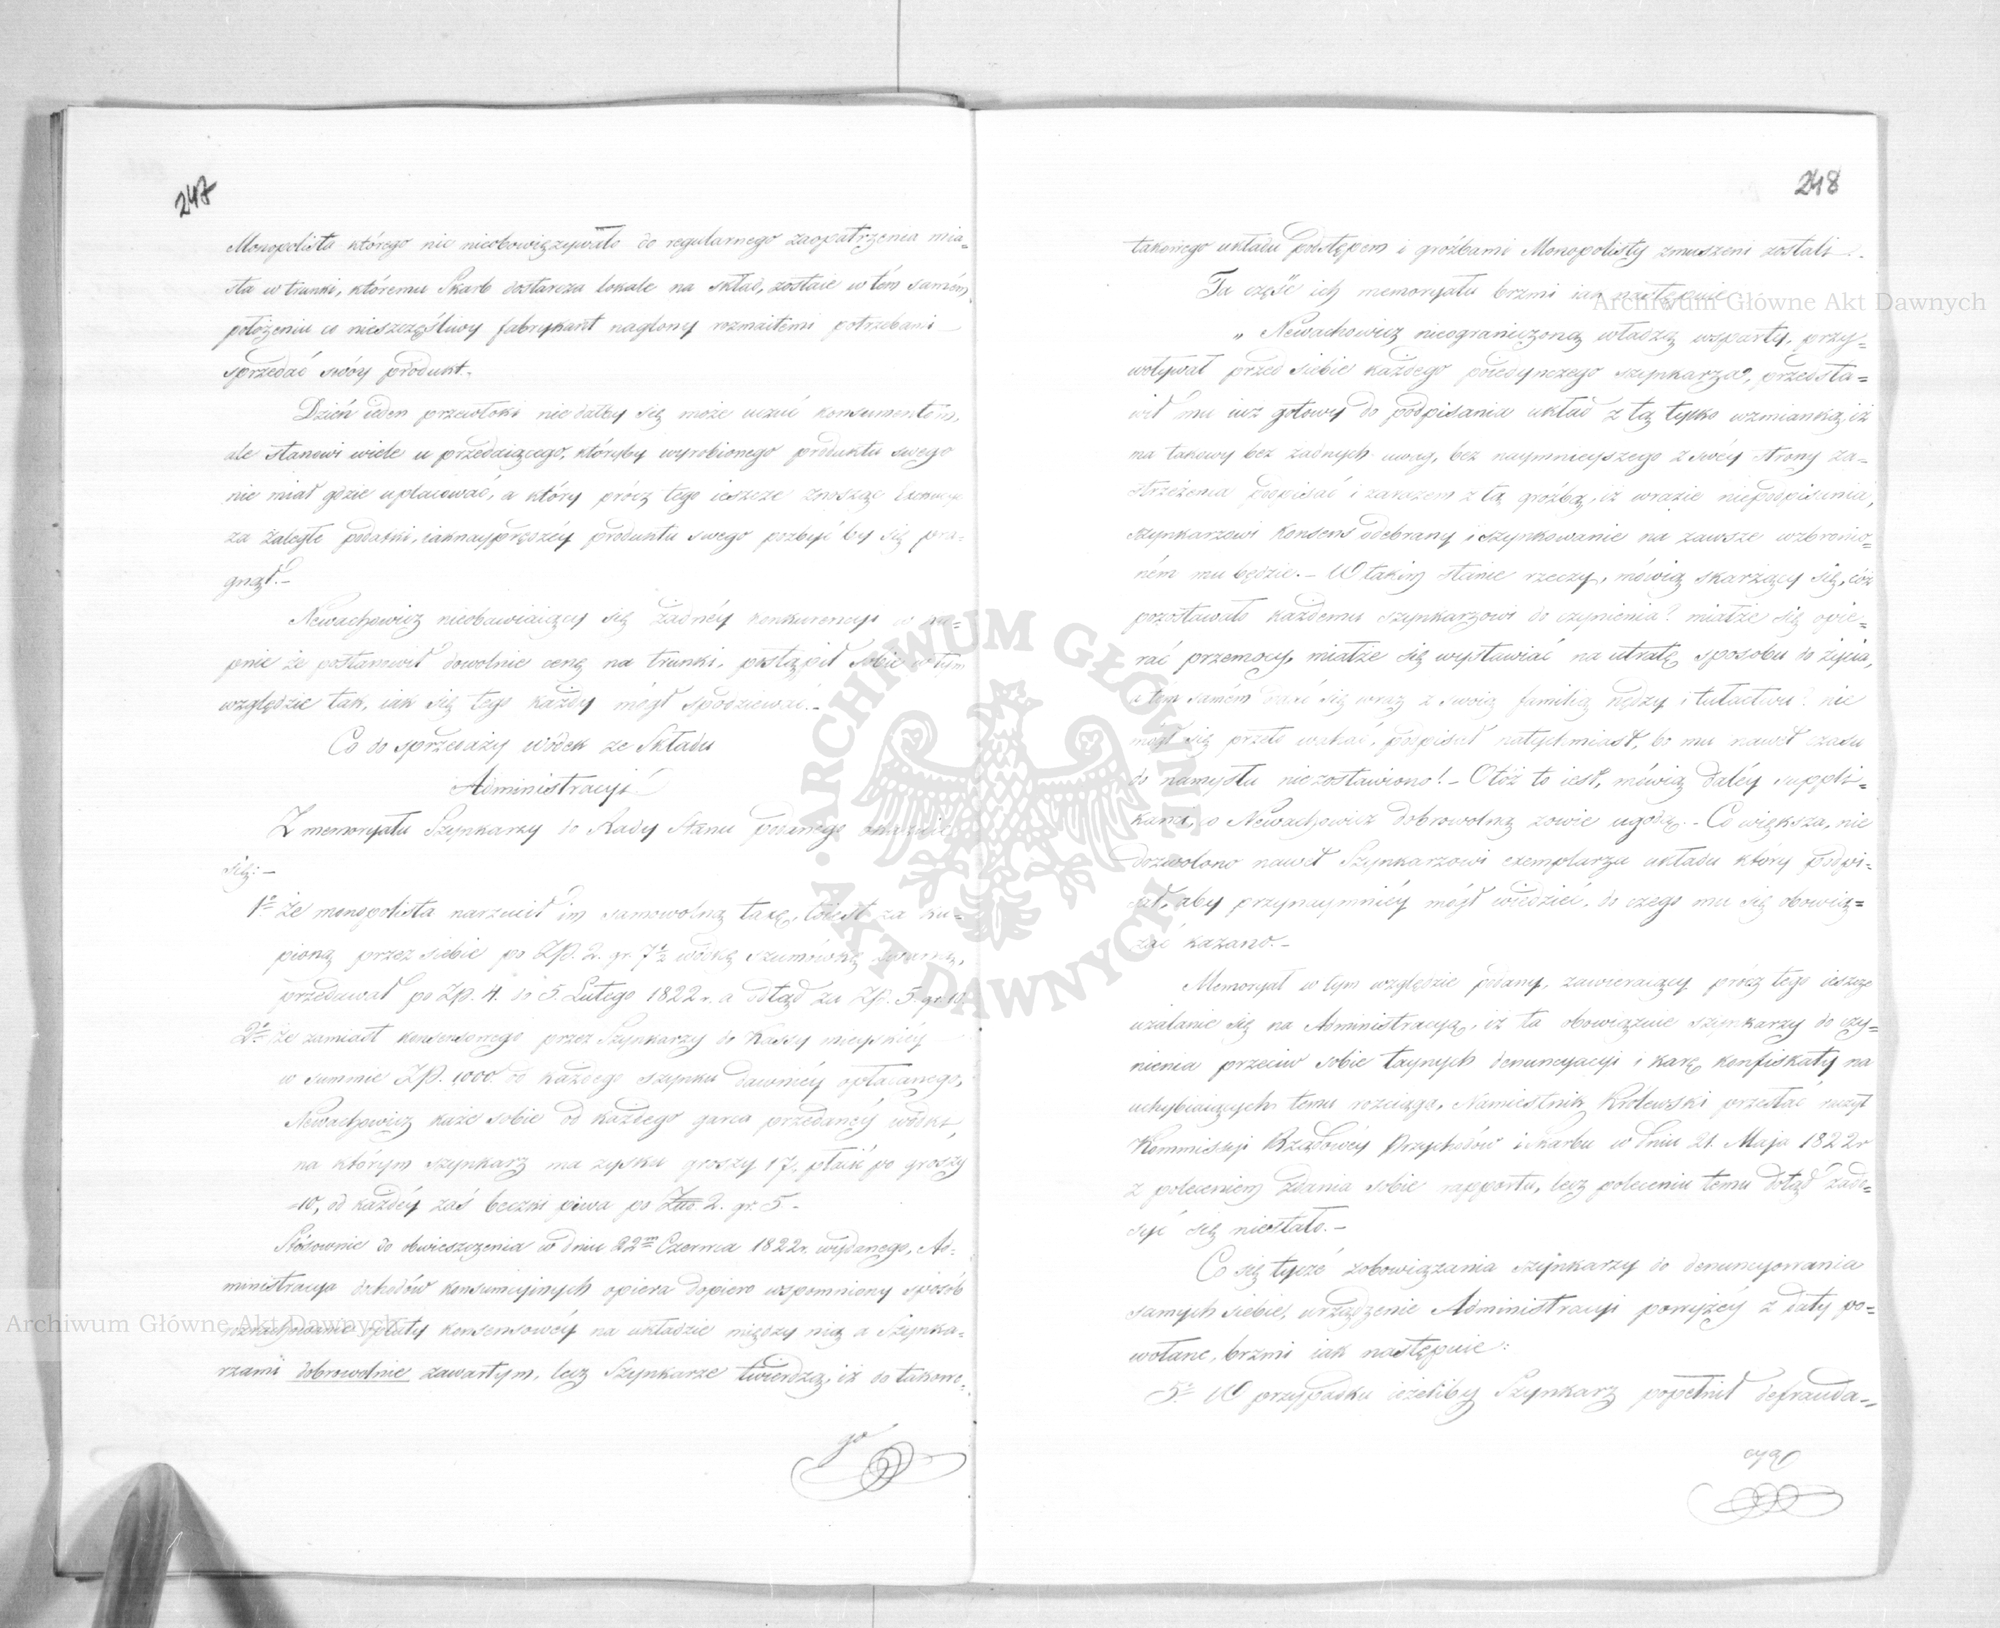 247
Monopolista którego nic nieobowiązywało do regularnego zaopatrzenia mia=
sta w trunki, któremu Skarb dostarcza lokale na skład, zostaie w tém samém
położeniu co nieszczęśliwy fabrykant naglony rozmaitemi potrzebami
sprzedać swóy produkt.
Dzień ieden przewłoki nie dałby się może uczuć konsumentom,
ale stanowi wiele u przedaiącego, któryby wyrobionego produktu swego
nie miał gdzie uplacować, a który prócz tego ieszcze znosząc
za zaległe podatki, iaknayprędzéy produktu swego pozbyć by się pra=
gnął.—
Newachowicz nieobawiaiący się żadnéy konkurencyi
pnie że postanowił dowolnie cenę na trunki, postąpił sobie w tym
względzie tak, iak się tego każdy mógł spodziewać.—
Co do sprzedaży wódek ze Składu
Administracyi
Z memoryału Szynkarzy do Rady Stanu podanego okazuie
się:—
1º że monopolista narzucił im samowolną taxę, toiest za ku=
pioną przez siebie po Zp. 2. gr. 7½ wódkę szumówkę
przedawał po Zp. 4. do 5. Lutego 1822 r. a odtąd za Zp. 5. gr. 10.
2º że zamiast konsensowego przez Szynkarzy do Kassy mieyskiéy
w summie Zp. 1000. od każdego szynku dawniéy opłacanego,
Newachowicz każe sobie od każdego garca przedanéy wódki,
na którym szynkarz ma zysku groszy 17, płacić po groszy
10, od każdéy zaś beczki piwa po Złt. 2. gr. 5 —
Stósownie do obwieszczenia w dniu 22m Czerwca 1822 r. wydanego, Ad=
ministracya dochodów konsumcyinych opiera dopiero wspomniony sposób
opłaty konsensowéy na układzie między nią a Szynka=
rzami dobrowolnie zawartym, lecz Szynkarze twierdzą, iż do takowe=
go
248
takowego układu podstępem i groźbami Monopolisty zmuszeni zostali.
Ta część ich memoryału brzmi iak następuie
„ Newachowicz nieograniczoną władzą wsparty, przy=
woływał przed siebie każdego poiedynczego szynkarza, przedsta=
wił mu iuż gotowy do podpisania układ z tą tylko wzmianką, iż
ma takowy bez żadnych uwag, bez naymnieyszego z swéy strony za=
strzeżenia podpisać i zarazem z tą groźbą, iż wrazie niepodpisania,
szynkarzowi konsens odebrany i szynkowanie na zawsze wzbronio=
ném mu będzie.— W takim stanie rzeczy, mówią skarżący się, cóż
pozostawało każdemu szynkarzowi do czynienia? miałże się opie=
rać przemocy, miałże się wystawiać na utratę sposobu do życia,
a tém samém dać się wraz z swoią familią nędzy i tułactwu? nie
mógł się przeto wahać, podpisał natychmiast, bo mu nawet czasu
do namysłu niezostawiono!— Otóż to iest, mówią daléy suppli=
kanci, co Newachowicz dobrowolną zowie ugodą.— Co większa, nie
dozwolono nawet Szynkarzowi exemplarza układu który podpi=
sał, aby przynaymniéy mógł wiedzieć, do czego mu się obowią=
zać kazano.—
Memoryał w tym względzie podany, zawieraiący prócz tego ieszcze
użalanie się na Administracyą, iż ta obowiązuie szynkarzy do czy=
nienia przeciw sobie taynych denuncyacyi i karę konfiskaty na
uchybiaiących temu rozciąga, Namiestnik Królewski przesłać raczył
Kommissyi Rządowéy Przychodów i Skarbu w dniu 21. Maja 1822 r
z poleceniem zdania sobie rapportu, lecz poleceniu temu dotąd zado=
syć się niestało.—
Co się tycze zobowiązania szynkarzy do denuncyowania
samych siebie, urządzenie Administracyi powyżéy z daty po=
wołane, brzmi iak następuie:
5º W przypadku ieżeliby Szynkarz popełnił defrauda=
cyą
Archiwum Główne Akt Dawnych
Archiwum Główne Akt Dawnych
ARCHIWUM GŁÓWNE AKT DAWNYCH